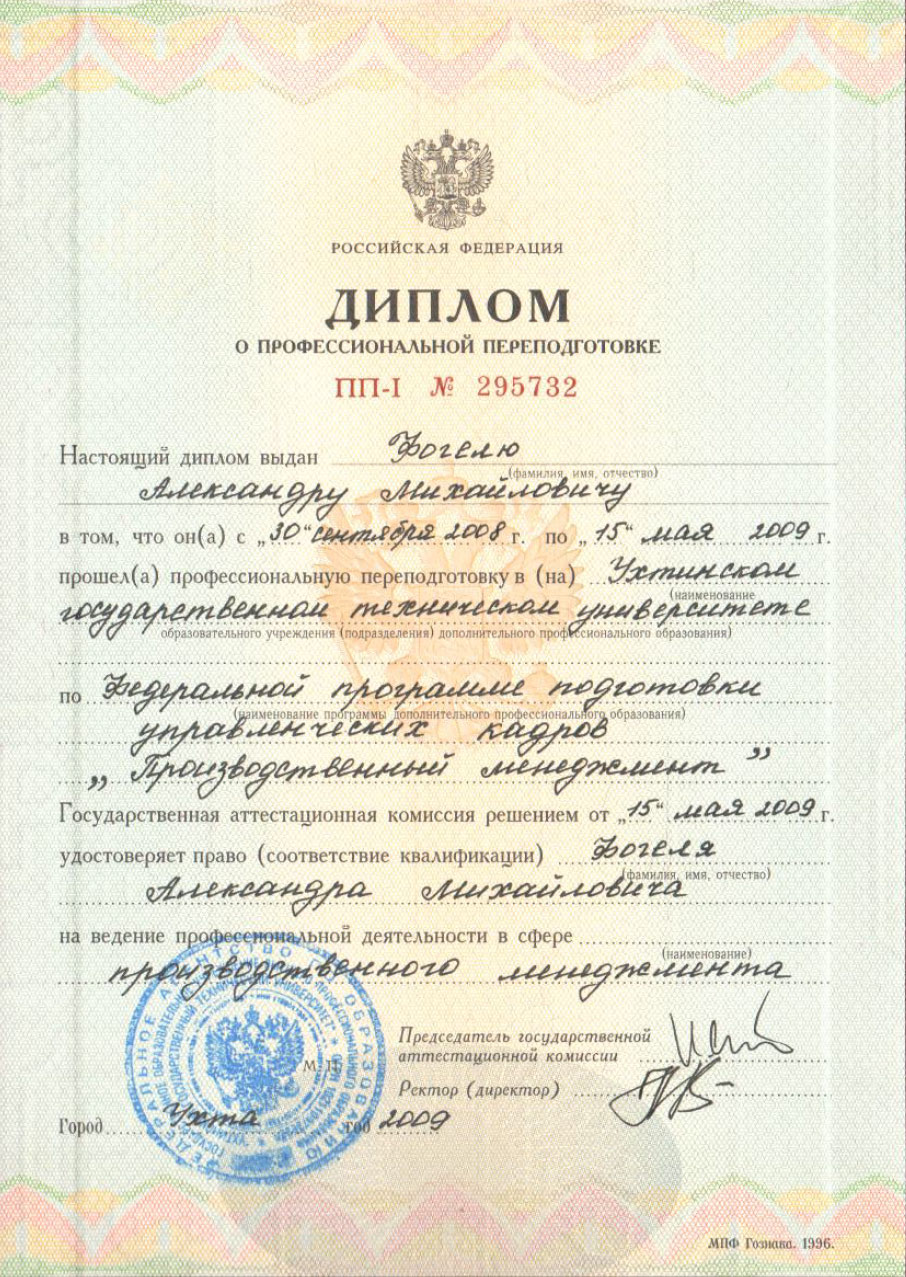 РОССИЙСКАЯ ФЕДЕРАЦИЯ
ДИПЛОМ
О ПРОФЕССИОНАЛЬНОЙ ПЕРЕПОДГОТОВКЕ
ПП-I № 295732
Настоящий диплом выдан Фогелю
(фамилия, имя, отчество)
Александру Михайловичу
в том, что он(а) с „30“ сентября 2008 г. по „15“ мая 2009 г.
прошел(а) профессиональную переподготовку в (на) Ухтинском
(наименование
государственном техническом университете
образовательного учреждения (подразделения) дополнительного профессионального образования)
по Федеральной программе подготовки
(наименование программы дополнительного профессионального образования)
управленческих кадров
„Производственный менеджмент”
Государственная аттестационная комиссия решением от „15“ мая 2009 г.
удостоверяет право (соответствие квалификации) Фогеля
(фамилия, имя, отчество)
Александра Михайловича
на ведение профессиональной деятельности в сфере
(наименование)
производственного менеджмента
Председатель государственной
аттестационной комиссии
М. П.
Ректор (директор)
Город Ухта год 2009
ФЕДЕРАЛЬНОЕ АГЕНТСТВО ПО ОБРАЗОВАНИЮ
МПФ Гознака. 1996.